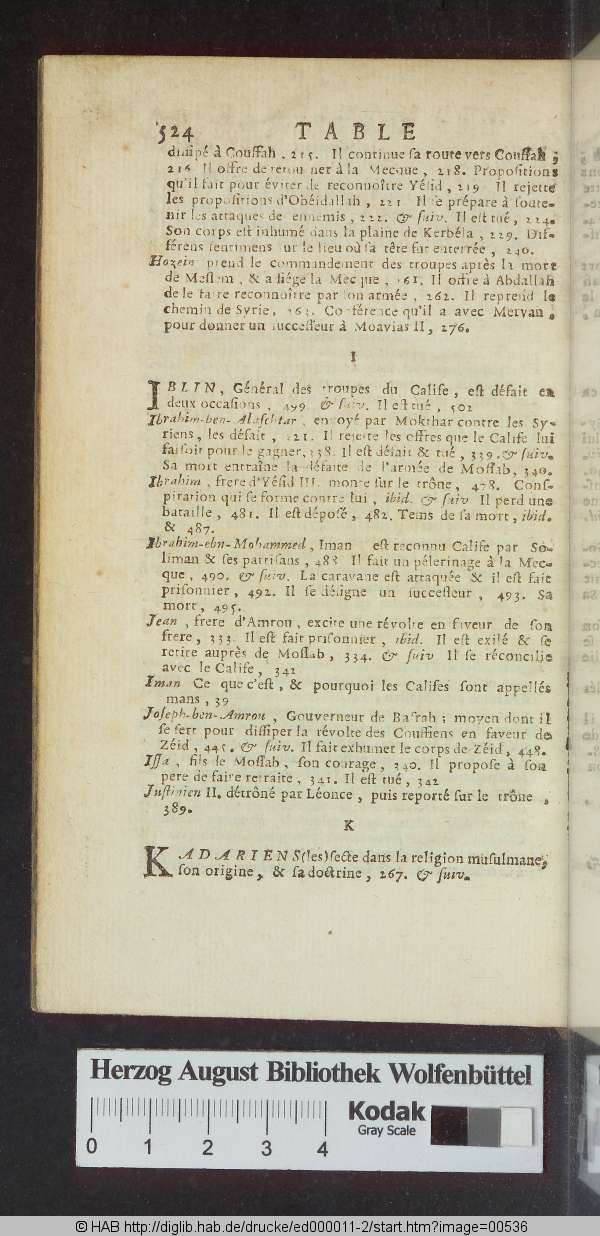 524 TABLE
dissipé à Couffah, 215. Il continue sa route vers Couffah ;
216 Il offre de retourner à la Mecque, 218. Propositions
qu'il fait pour éviter de reconnoître Yésid, 219 Il rejette
les propositions d'Obéidallah, 221 Il se prépare à soute-
nir les attaques des ennemis, 222. & suiv. Il est tué, 224.
Son corps est inhumé dans la plaine de Kerbéla, 229. Dif-
férens sentimens sur le lieu où sa tête fut enterrée, 240.
Hozein prend le commandement des troupes après la mort
de Meslem, & assiége la Mecque, 261. Il offre à Abdallah
de le faire reconnoître par son armée, 262. Il reprend le
chemin de Syrie, 263. Conférence qu'il a avec Mervan,
pour donner un successeur à Moavias II, 276.
I
IBLIN, Général des troupes du Calife, est défait en
deux occasions, 499. & suiv. Il est tué, 502
Ibrahim-ben-Alaschtar, envoyé par Mokthar contre les Sy-
riens, les défait, 321. Il rejette les offres que le Calife lui
faisoit pour le gagner, 338. Il est défait & tué, 339. & suiv.
Sa mort entraîne la défaite de l'armée de Mossab, 340.
Ibrahim, frere d'Yésid III. monte sur le trône, 478. Cons-
piration qui se forme contre lui, ibid. & suiv Il perd une
bataille, 481. Il est déposé, 482. Tems de sa mort, ibid.
& 487.
Ibrahim-ebn-Mohammed, Iman est reconnu Calife par So-
liman & ses partisans, 488 Il fait un pélerinage à la Mec-
que, 490. & suiv. La caravane est attaquée & il est fait
prisonnier, 492. Il se désigne un successeur, 493. Sa
mort, 495.
Jean, frere d'Amron, excite une révolte en faveur de son
frere, 333. Il est fait prisonnier, ibid. Il est exilé & se
retire auprès de Mossab, 334. & suiv Il se réconcilie
avec le Calife, 342
Iman Ce que c'est, & pourquoi les Califes sont appellés
Imans, 39
Joseph-ben-Amrou, Gouverneur de Basrah ; moyen dont il
se sert pour dissiper la révolte des Couffiens en faveur de
Zéid, 445. & suiv. Il fait exhumer le corps de Zéid, 448.
Issa, fils de Mossab, son courage, 340. Il propose à son
pere de faire retraite, 341. Il est tué, 342
Justinien II. détrôné par Léonce, puis reporté sur le trône,
389.
K
KADARIENS (les) secte dans la religion musulmane,
son origine, & sa doctrine, 267. & suiv.
Herzog August Bibliothek Wolfenbüttel
0 1 2 3 4
Kodak
Gray Scale
© HAB http://diglib.hab.de/drucke/ed000011-2/start.htm?image=00536